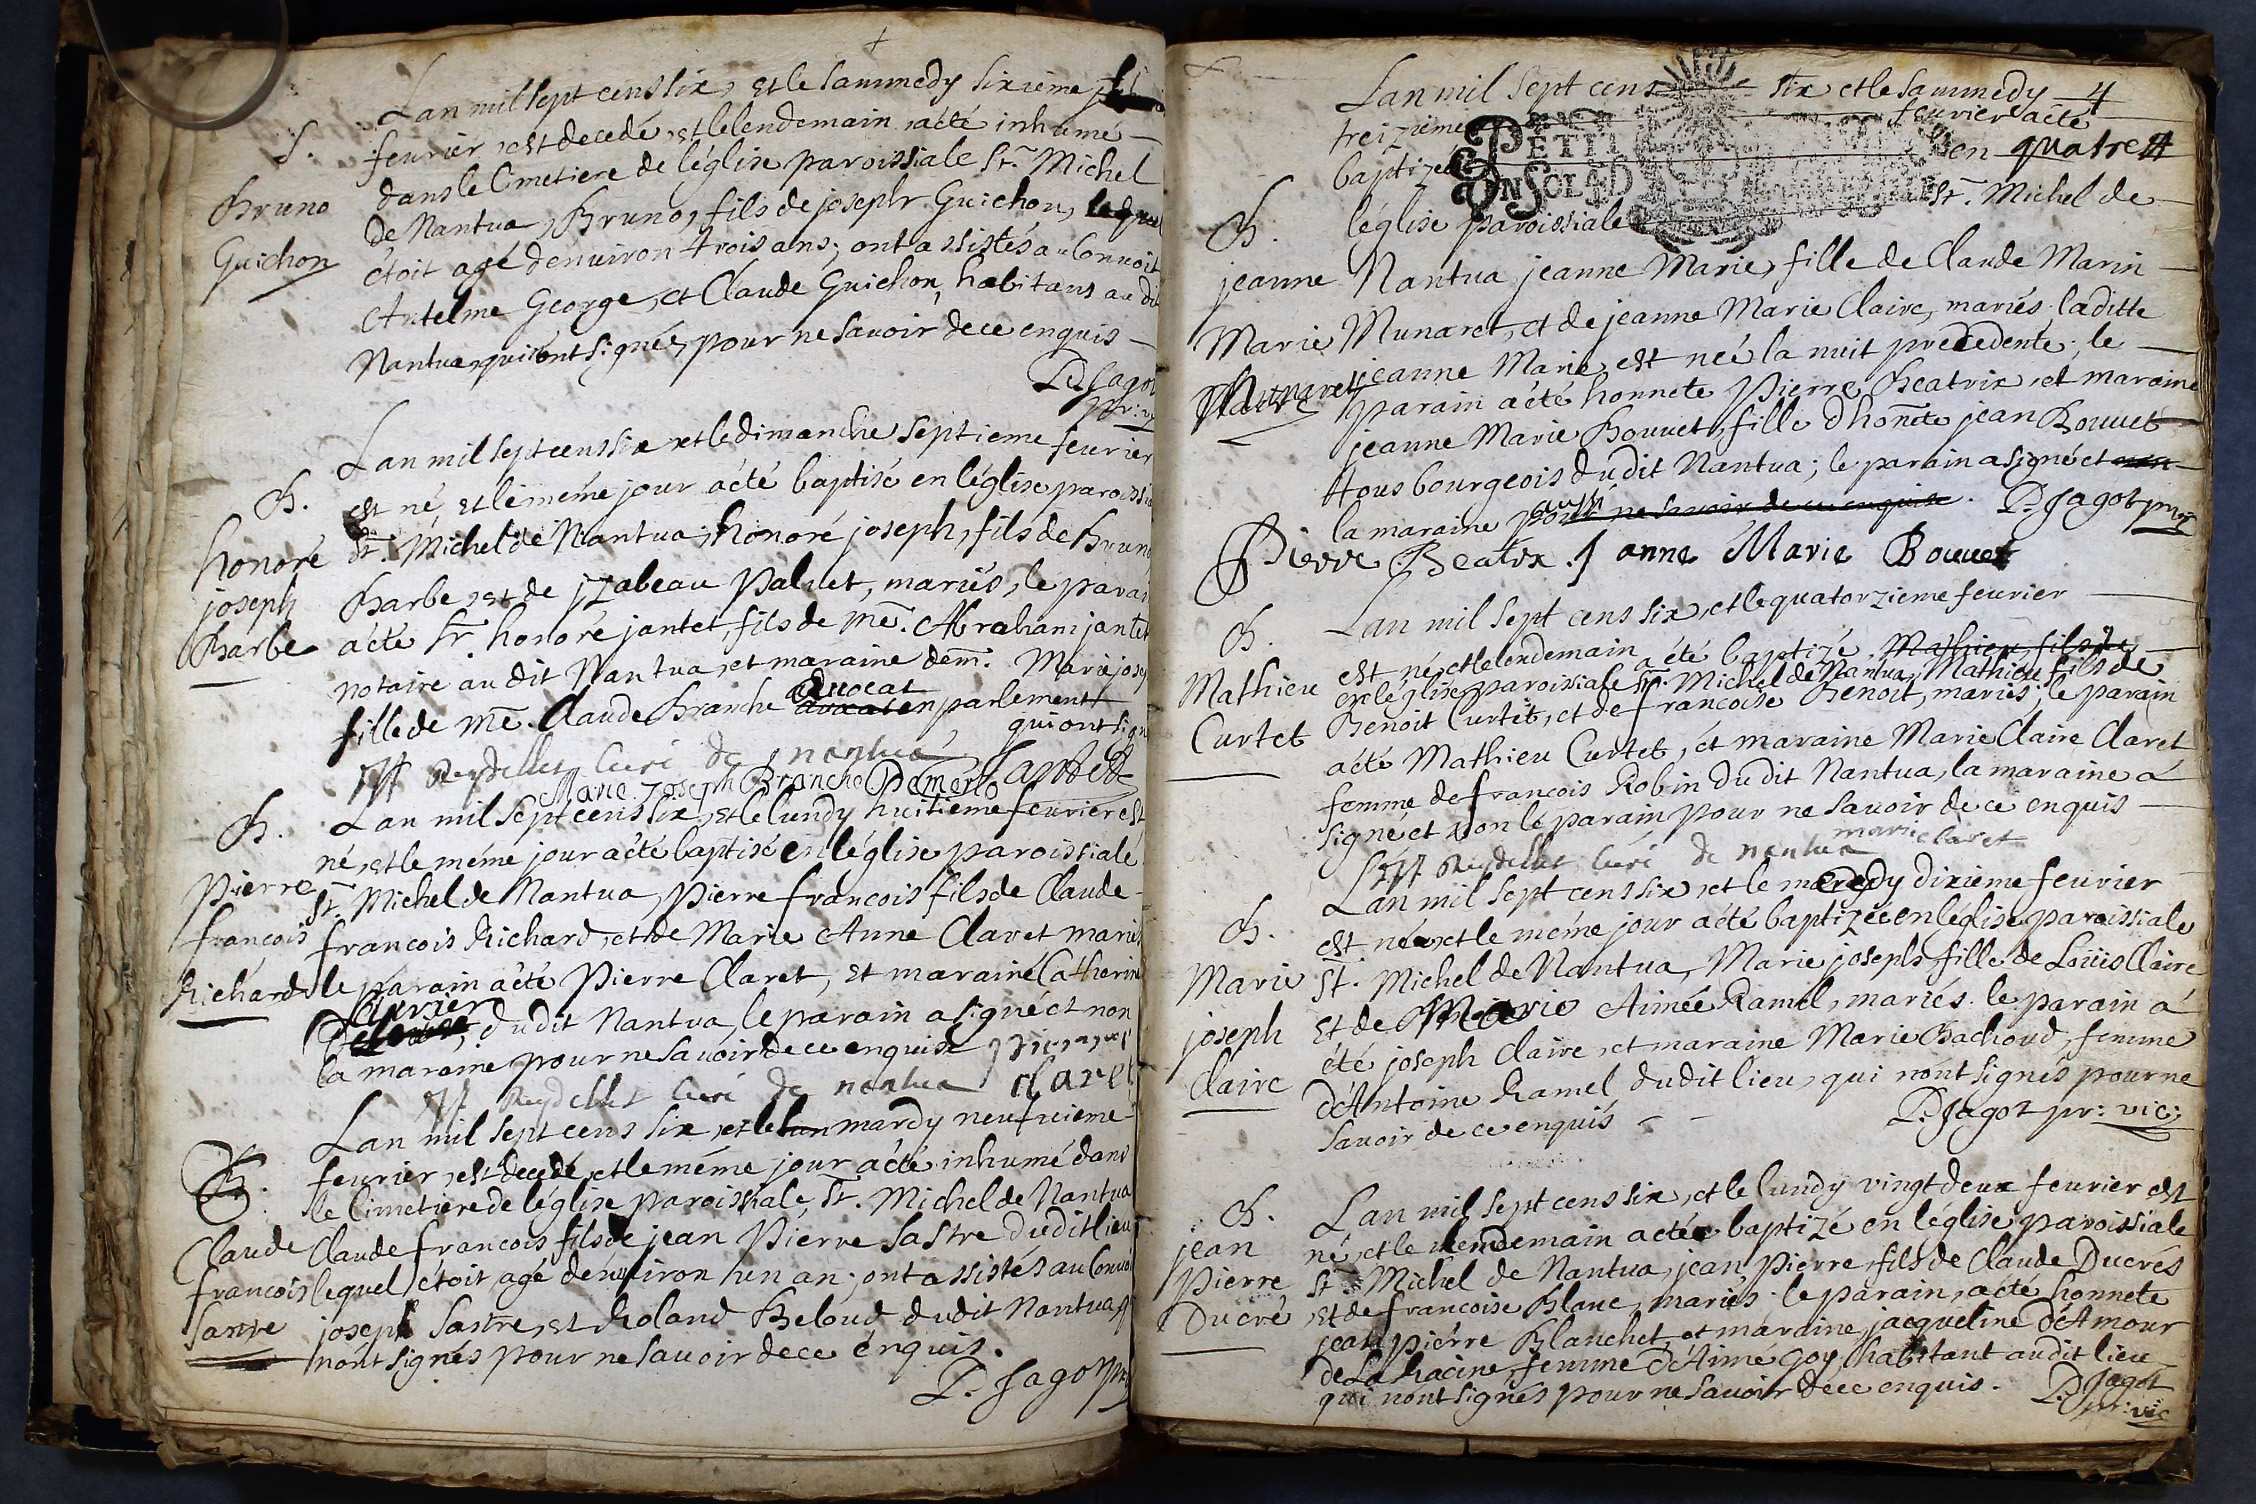 Lan mil sept cens six, et le sammedy sixieme
S. feurier, est decedé, et le lendemain, a été inhumé
dans le Cimetiere de léglise paroissiale St. Michel
Bruno de Nantua, Bruno, fils de joseph Guichon, lequel
Guichon étoit agé denuiron trois ans; ont assistés au Conuoit
Antelme George, et Claude Guichon, habitans au dit
Nantua, qui n'ont signés, pour ne sauoir de ce enquis
P. Jagot
pr: vic
Lan mil sept cens six et le dimanche septieme feurier
B. est né, et le méme jour a été baptisé en léglise paroissiale
honoré St. Michel de Nantua, honoré joseph, fils de Bruno
joseph Barbe, et de jzabeau Paluet, mariés, le parain
Barbe a été Sr. honoré jantet, fils de Me. Abraham jantet
notaire au dit Nantua, et maraine dem. Marie joseph
fille de Me. Claude Branche auocat en parlement
qui ont signé
Reydellet Curé de nantua
Marie Joseph Branche Jantet
B. Lan mil sept cens six, et le lundy huitieme feurier est
né, et le méme jour a été baptisé en léglise paroissiale
Pierre St. Michel de Nantua, Pierre francois fils de Claude
francois francois Richard, et de Marie Anne Claret mariés
Richard le parain a été Pierre Claret, et maraine Catherine
dudit Nantua, le parain a signé et non
la maraine pour ne sauoir de ce enquise pierre
Reydellet Curé de nantua claret
Lan mil sept cens six, et le mardy neufuieme
feurier, est decedé, et le méme jour a été inhumé dans
le Cimetiere de léglise paroissiale, St. Michel de Nantua
Claude Claude francois fils de jean Pierre Sastre dudit lieu
francois lequel étoit agé denuiron hun an; ont assistés au Conuoi
Sastre joseph Sastre, et Roland Beloud dudit Nantua qui
nont signés pour ne sauoir de ce enquis.
P. Jagot pr
Lan mil sept cens six et le sammedy 4
treizieme feurier a été
baptizée en quatre 4
PETIT
ON SOL 4 D
B. léglise paroissiale St. Michel de
jeanne Nantua jeanne Marie, fille de Claude Marin
Marie Munaret, et de jeanne Marie Claire, mariés. laditte
Munaret jeanne Marie est neé la nuit precedente; le
parain a été honnete Pierre Beatrix, et maraine
jeanne Marie Bouuet, fille dhonete jean Bouuet
tous bourgeois dudit Nantua; le parain a signé et
la maraine aussi pour ne sauoir de ce enquise. P. Jagot pr vic
Pierre Beatrix. J anne Marie Bouuet
B. Lan mil sept cens six, et le quatorzieme feurier
est né, et le lendemain a été baptizé Mathieu, fils de
Mathieu en léglise paroissiale St. Michel de Nantua, Mathieu fils de
Curtet Benoit Curtet, et de francoise Benoit, mariés; le parain
a été Mathieu Curtet, et maraine Marie Claire Claret
femme de francois Robin dudit Nantua, la maraine a
signé et non le parain pour ne sauoir de ce enquis
Reydellet Curé de nantua marie claret
Lan mil sept cens six, et le mercredy dixieme feurier
B. est née, et le méme jour a été baptizée en léglise paroissiale
Marie St. Michel de Nantua, Marie joseph fille de Loüis Claire
joseph et de Marie Aimée Ramel, mariés. le parain a
Claire été joseph Claire, et maraine Marie Bachoud, femme
dAntoine Ramel dudit lieu, qui nont signés pour ne
sauoir de ce enquis
P. Jagot pr: vic:
B. Lan mil sept cens six, et le lundy vingt deux feurier est
jean né, et le lendemain a été baptizé en léglise paroissiale
Pierre St. Michel de Nantua, jean Pierre, fils de Claude Ducrés
Ducré et de francoise Blanc, mariés. le parain, a été honnete
jean pierre Blanchet, et maraine jacqueline d'Amour
de La Racine, femme d'Aimé Goy, habitant au dit lieu
qui nont signés pour ne sauoir de ce enquis. P. Jagot
pr: vic